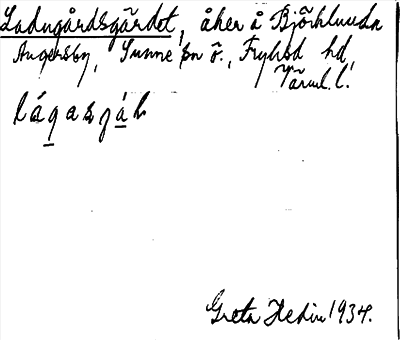 Ladugårdsgärdet, åker å Björklunda
Angersby, Sunne sn ö., Fryksd hd,
Värml. l.
Greta Hedin 1934.